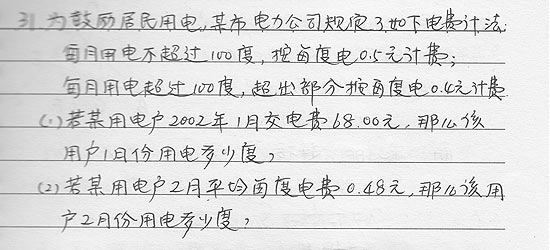 31.为鼓励居民用电,某市电力公司规定了如下电费计法:
每月用电不超过100度,按每度电0.5元计费;
每月用电超过100度,超出部分按每度电0.4元计费
(1)若某用电户2002年1月交电费68.00元,那么该
用户1月份用电多少度?
(2)若某用电户2月平均每度电费0.48元,那么该用
户2月份用电多少度?